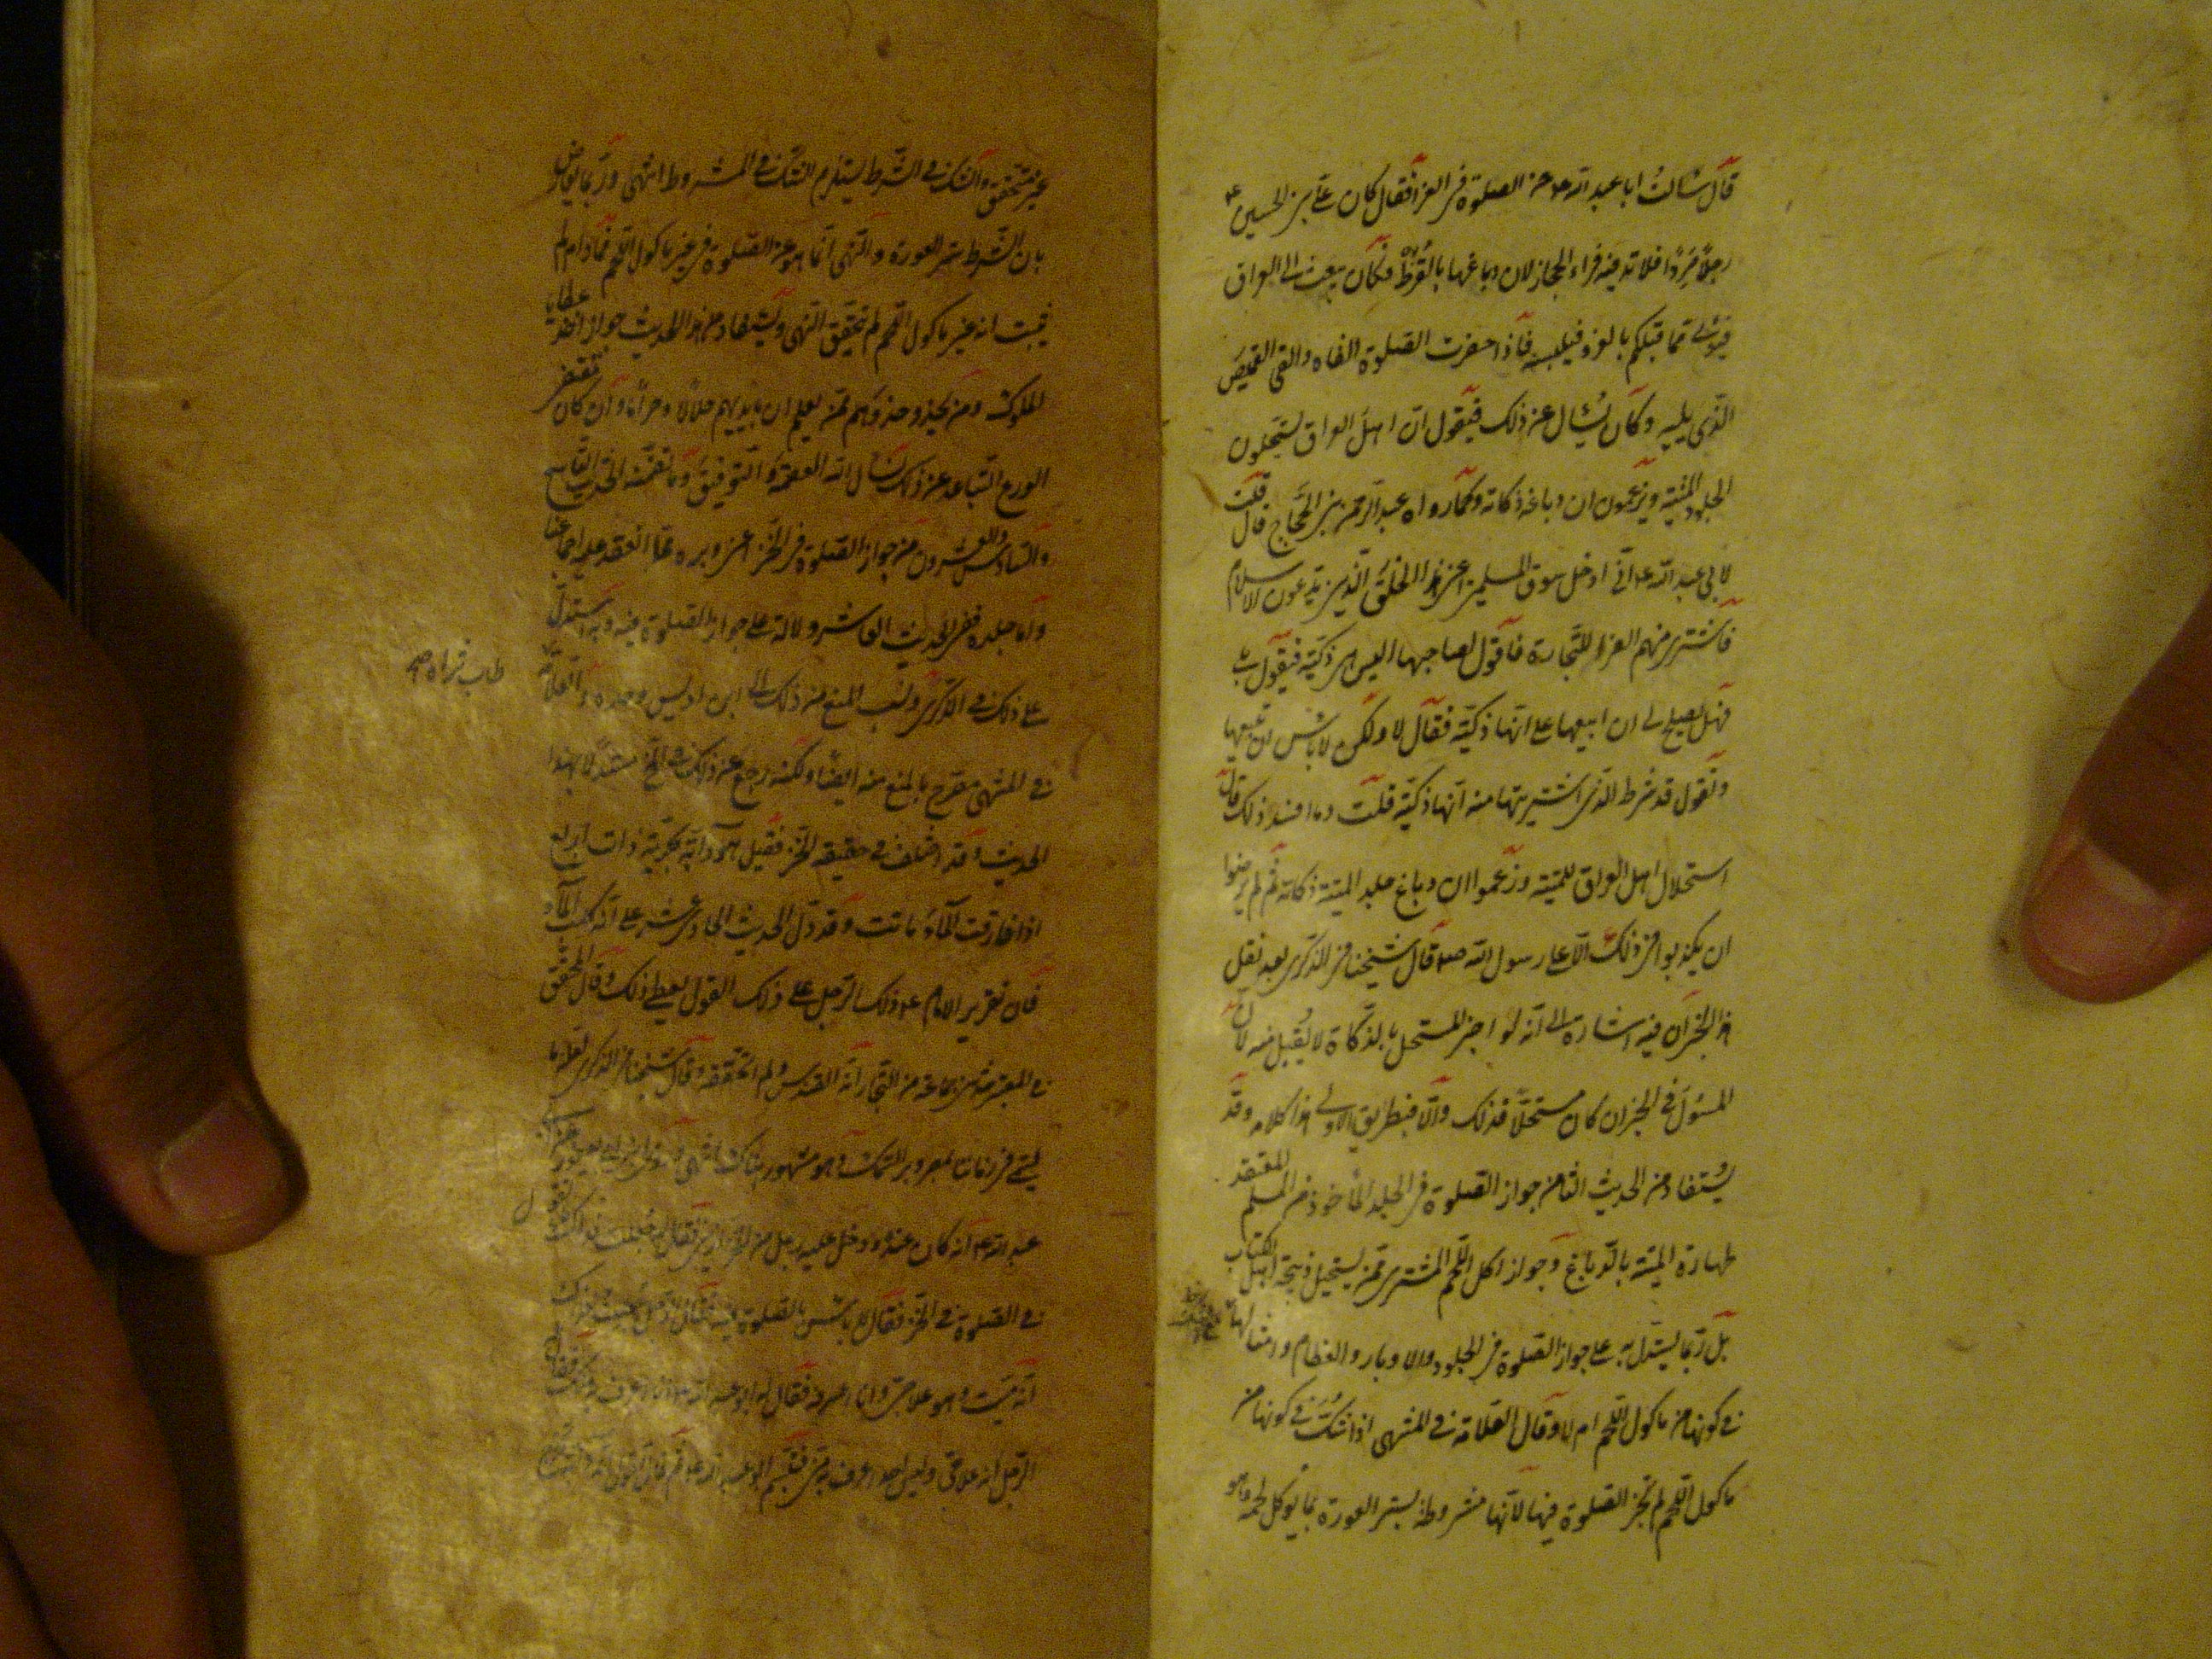 قال سالت ابا عبد الله ع عن الصلوة فى الفرا فقال كان على بن الحسين ع
رجلا صردا فلا تدفئه فراء الحجاز لان دباغها بالقرظ فكان يبعث الى العراق
فيؤتى مما قبلكم بالفرو فيلبسه فاذا حضرت الصلوة القاه والقى القميص
الذى يليه وكان يسئال عن ذلك فيقول ان اهل العراق يستحلون
الجلود الميتة ويزعمون ان دباغه ذكاته وكما رواه عبد الرحمن بن الحجاج قال قلت
لابى عبد الله ع انى ادخل سوق المسلمين اعنى هذا الخلق الذين يدعون الاسلام
فاشترى منهم الفراء للتجارة فاقول لصاحبها اليس هى ذكية فيقول بلى
فهل يصلح لى ان ابيعها على انها ذكية فقال لا ولكن لا باس ان تبيعها
وتقول قد شرط الذى اشتريتها منه انها ذكية قلت وما افسد ذلك قال
استحلال اهل العراق للميتة وزعموا ان دباغ جلد الميتة ذكاته ثم لم يرضوا
ان يكذبوا فى ذلك الا على رسول الله ص قال شيخنا فى الذكرى بعد نقل
هذا الخبر ان فيه اشارة الى انه لو اخبر المستحل بالذكاة لا يقبل منه لان
المسئول فى الخبر ان كان مستحلا فذلك والا فبطريق الاولى هذا كلامه وقد
يستفاد من الحديث الثامن جواز الصلوة فى الجلد الماخوذ من المسلم المعتقد
طهارة الميتة بالدباغ وجواز اكل اللحم المشترى ممن يستحل ذبيحة اهل الكتاب
بل ربما يستدل به على جواز الصلوة فى الجلود والاوبار والعظام وامثالها
فى كونها من ماكول اللحم ام لا وقال العلامة فى المنتهى اذا شك فى كونها من
ماكول اللحم لم تجز الصلوة فيها لانها مشروطة بستر العورة بما يوكل لحمه وهو
غير متحقق والشك فى الشرط يستلزم الشك فى المشروط انتهى وربما يقال
بان الشرط ستر العورة والنهى انما هو عن الصلوة فى غير ماكول اللحم فما دام لم
يثبت انه غير ماكول اللحم لم يتحقق النهى ويستفاد من هذا الحديث جواز اخذ عطايا
الملوك ومن يحذو حذوهم ممن يعلم ان بايديهم حلالا وحراما وان كان مقتضى
الورع التباعد عن ذلك نسال الله العصمة والتوفيق وما تضمنه الحديث التاسع
والسادس والعشرون من جواز الصلوة فى الخز اعنى وبره مما انعقد عليه اجماعنا
واما جلده ففى الحديث العاشر دلالة على جواز الصلوة فيه وبه استدل
على ذلك فى الذكرى ونسب المنع من ذلك الى ابن ادريس وحده والعلامة
طاب ثراه
فى المنتهى مصرح بالمنع منه ايضا ولكنه رجع عن ذلك فى مستدلا بهذا
الحديث وقد اختلف فى حقيقة الخز فقيل هو دابة بحرية ذات اربع
اذا فارقت الماء ماتت وقد دل الحديث الحادى عشر على انه كلب الماء
فان تقرير الامام ع ذلك الرجل على ذلك القول يعطى ذلك وقال المحقق
فى المعتبر حدثنى جماعة من التجار انه القندس ولم اتحققه وقال شيخنا فى الذكرى لعله ما
يسمى فى زماننا بمصر وبر السمك وهو مشهور هناك انتهى
عبد الله ع انه كان عنده ودخل عليه رجل من الخزازين فقال له جعلت فداك
فى الصلوة فى الخز فقال لا باس بالصلوة فيه فقال الرجل جعلت فداك
انه ميت وهو علاجى وانا اعرفه فقال له ابو عبد الله ع انا اعرف به منك فقال
الرجل انه علاجى وليس احد اعرف به منى فتبسم ابو عبد الله ع ثم قال